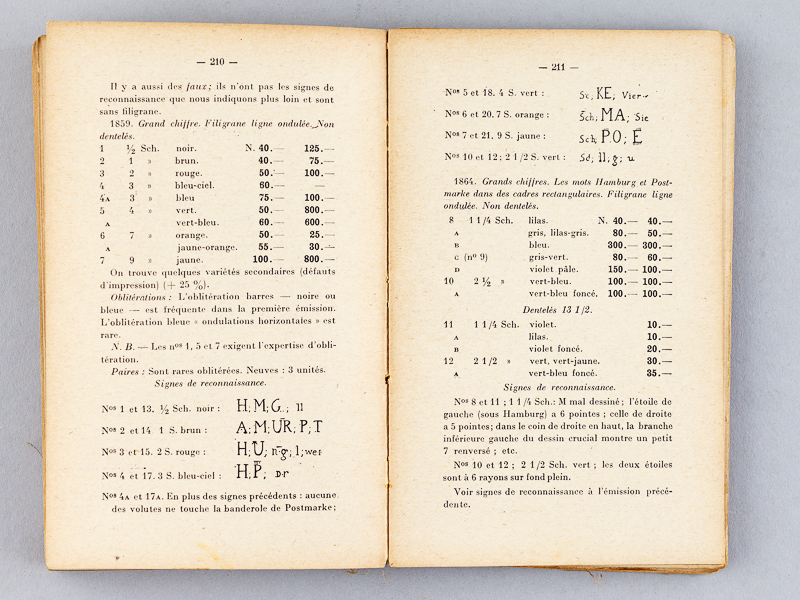 — 210 —
Il y a aussi des faux; ils n'ont pas les signes de
reconnaissance que nous indiquons plus loin et sont
sans filigrane.
1859. Grand chiffre. Filigrane ligne ondulée. Non
dentelés.
1 ½ Sch. noir. N. 40.— 125.—
2 1 » brun. 40.— 75.—
3 2 » rouge. 50.— 100.—
4 3 » bleu-ciel. 60.— —
4A 3 » bleu 75.— 100.—
5 4 » vert. 50.— 800.—
A vert-bleu. 60.— 600.—
6 7 » orange. 50.— 25.—
A jaune-orange. 55.— 30.—
7 9 » jaune. 100.— 800.—
On trouve quelques variétés secondaires (défauts
d'impression) (+ 25 %).
Oblitérations : L'oblitération barres — noire ou
bleue — est fréquente dans la première émission.
L'oblitération bleue « ondulations horizontales » est
rare.
N. B. — Les nos 1, 5 et 7 exigent l'expertise d'obli-
tération.
Paires : Sont rares oblitérées. Neuves : 3 unités.
Signes de reconnaissance.
Nos 1 et 13. ½ Sch. noir : H; M; G.; ll
Nos 2 et 14 1 S. brun : A; M; UR, P; T
Nos 3 et 15. 2 S. rouge : H; U; n-g; l; wer
Nos 4 et 17. 3 S. bleu-ciel : H; P; Dr
Nos 4A et 17A. En plus des signes précédents : aucune
des volutes ne touche la banderole de Postmarke;
— 211 —
Nos 5 et 18. 4 S. vert : Sc; KE; Vier-
Nos 6 et 20. 7 S. orange : Sch; MA; Sie
Nos 7 et 21. 9 S. jaune : Sch; P.O; E
Nos 10 et 12; 2 1/2 S. vert : Sd; ll; g; u
1864. Grands chiffres. Les mots Hamburg et Post-
marke dans des cadres rectangulaires. Filigrane ligne
ondulée. Non dentelés.
8 1 1/4 Sch. lilas. N. 40.— 40.—
A gris, lilas-gris. 80.— 50.—
B bleu. 300.— 300.—
C (no 9) gris-vert. 80.— 60.—
D violet pâle. 150.— 100.—
10 2 ½ » vert-bleu. 100.— 100.—
A vert-bleu foncé. 100.— 100.—
Dentelés 13 1/2.
11 1 1/4 Sch. violet. 10.—
A lilas. 10.—
B violet foncé. 20.—
12 2 1/2 » vert, vert-jaune. 30.—
A vert-bleu foncé. 35.—
Signes de reconnaissance.
Nos 8 et 11 ; 1 1/4 Sch.: M mal dessiné; l'étoile de
gauche (sous Hamburg) a 6 pointes ; celle de droite
a 5 pointes; dans le coin de droite en haut, la branche
inférieure gauche du dessin crucial montre un petit
7 renversé ; etc.
Nos 10 et 12 ; 2 1/2 Sch. vert ; les deux étoiles
sont à 6 rayons sur fond plein.
Voir signes de reconnaissance à l'émission précé-
dente.